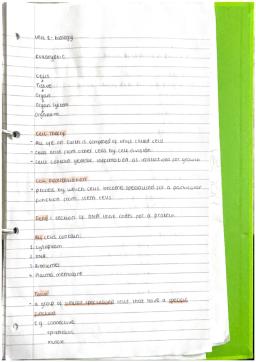 Unit 2: biology
Eukaryotic
Cells
Tissue
Organ
Organ System
Organism
Cell Theory
- All life on Earth is composed of units called cells
- Cells arise from other cells by cell division
- Cells contain genetic information as instructions for growth
Cell Specialisation
- process by which cells become specialised for a particular
function from stem cells
Gene: section of DNA that codes for a protein
All cells contain:
1. Cytoplasm
2. DNA
3. Ribosomes
4. Plasma membrane
Tissue
- a group of similar specialised cells that have a specific
function
e.g. connective
epithelial
muscle